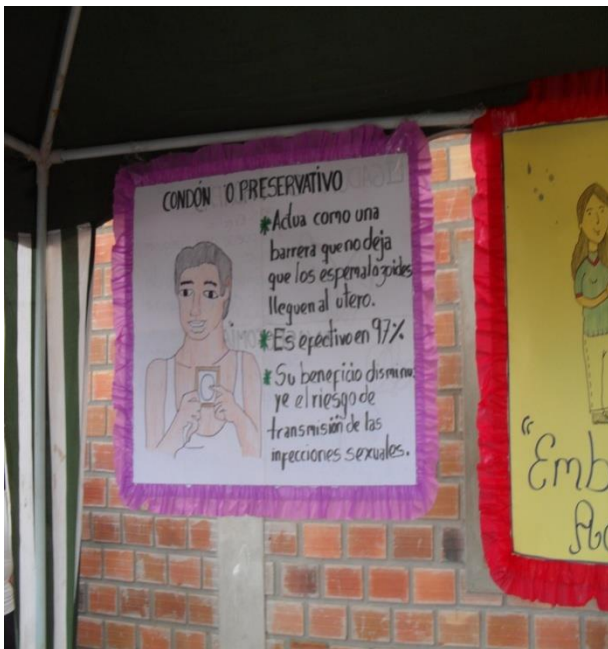 CONDÓN O PRESERVATIVO
* Actua como una
barrera que no deja
que los espermatozoides
lleguen al utero.
* Es efectivo en 97%
* Su beneficio disminu
ye el riesgo de
transmisión de las
infecciones sexuales.
"Emb